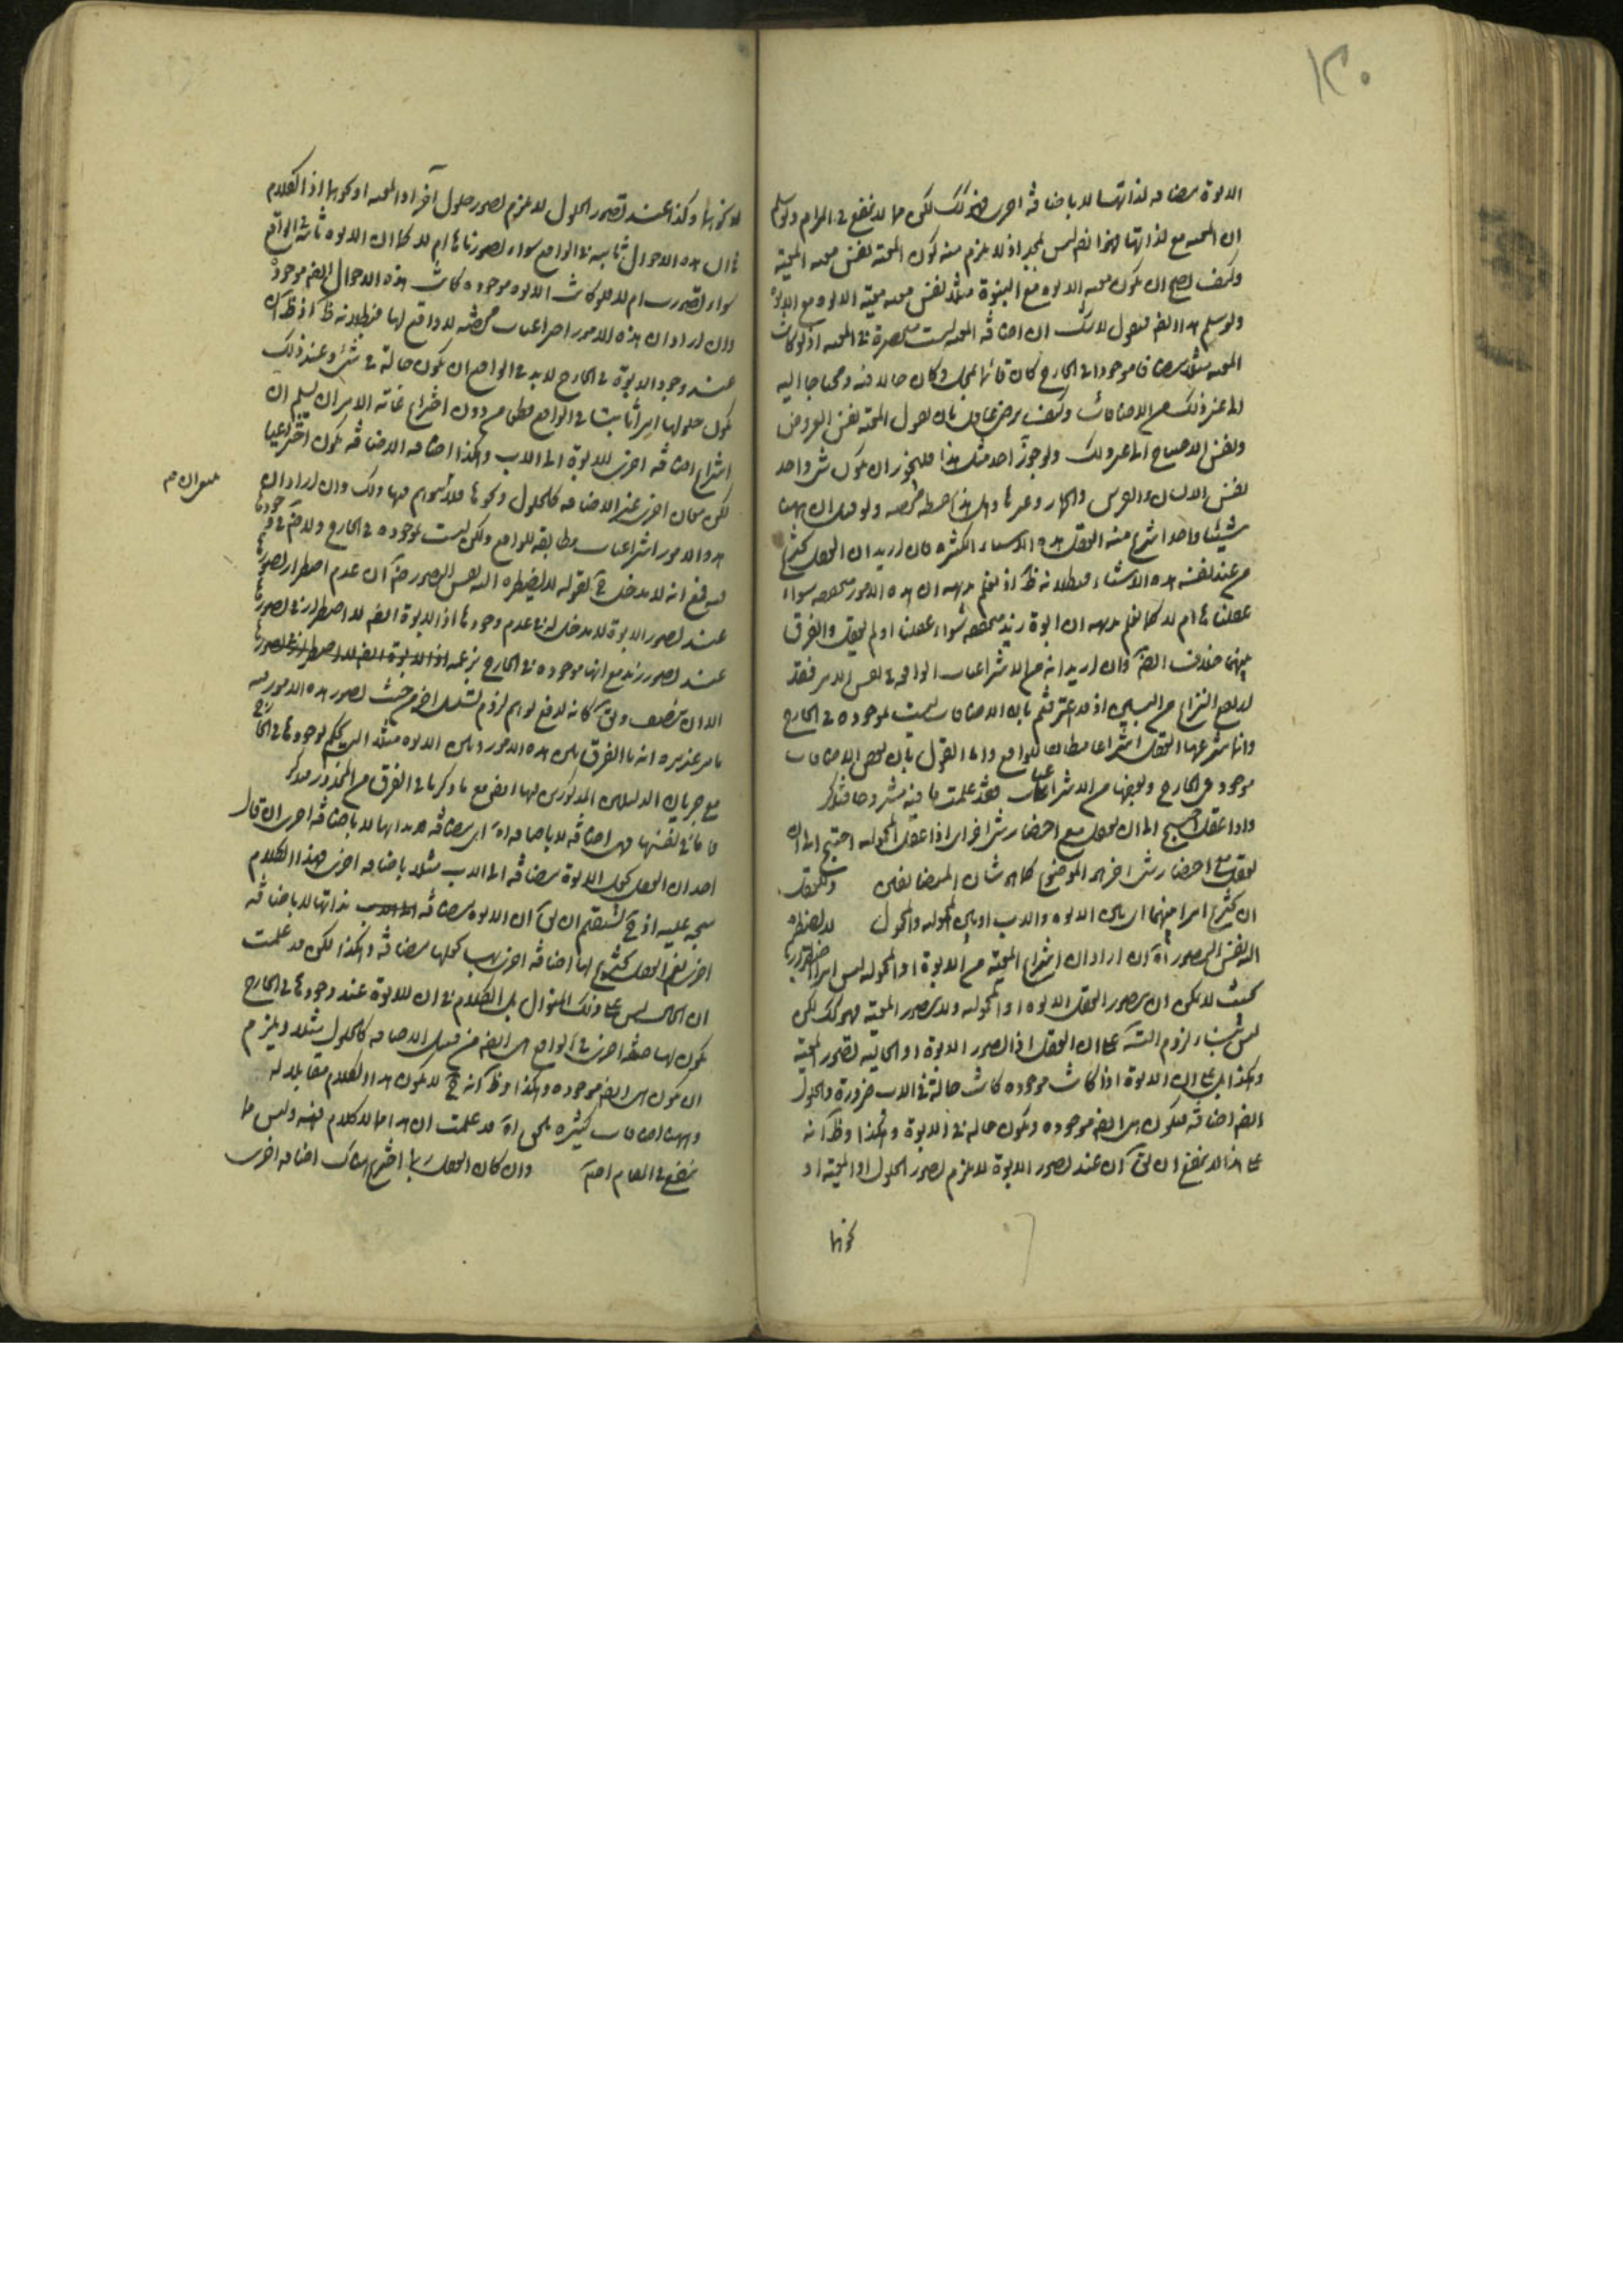 ١٣٠
الابوة مضافه لذاتها لا باضافة اخرى فهو كك لكن مما لا ينفع في المرام ولو سلم
ان المعيه مع لذاتها فهذا ايضا ليس بمجد اذ لا يلزم منه كون المعية نفس معيه المعية
وكيف يصح ان يكون معيه الابوه مع البنوة مثلا نفس معيه معية الابوه مع الابوة
ولو سلم هذا ايضا فنقول لا شك ان اضافة المحليه ليست منحصرة في المعيه اذ لو كانت
المعيه مثلا مضافا موجودا في الخارج كان قائما بمحل وكان حالا فيه ومحتاجا اليه
الى غير ذلك من الاضافات وكيف يرضى عاقل بان يقول المعية نفس العروض
ونفس الاحتياج الى غير ذلك ولو جوز احد مثل هذا فليجوز ان يكون شئ واحد
نفس الانسان والفرس والحمار وغيرها وهل هذا الا سفسطه ولو قيل ان ههنا
شيئا واحدا انتزع منه العقل هذه الاسماء الكثيره فان اريد ان العقل يخترع
من عند نفسه هذه الاشياء فبطلانه ظ اذ نعلم بديهه ان هذه الامور متحققه سواء
عقلناها ام لا كما نعلم بديهه ان ابوة زيد متحققه سواء عقلنا او لم نعقل والفرق
بينهما خلاف وان اريد انه من الانتزاعيات الواقعيه في نفس الامر فقد
ارتفع النزاع من البين اذ قد اعترفتم بان الاضافات ليست بموجوده في الخارج
وانما ينتزعها العقل انتزاعا مطابقا للواقع واما القول بان بعض الاضافات
موجود في الخارج وبعضها من الانتزاعيات فقد علمت ما فيه مشروحا فتذكر
واذا عقل احتيج الى ان يعقل مع احضار شئ اخر اى اذا عقل المحموليه احتيج الى ان
يعقل مع احضار شئ اخر هو الموضوع كما هو شان المتضايفين وللعقل
ان يخترع امرا بينهما اى بين الابوه والاب او بين المحموليه والمحمول لا يضطره
اليه نفس التصور اه ان اراد ان اختراع المعية من الابوة او المحموليه ليس امرا
بحيث لا يمكن ان يتصور العقل الابوه او المحموليه ولا يتصور المعية فهو كك لكن
ليس بناء لزوم التس على ان العقل اذا تصور الابوة او الحالية تصور المعية
وهكذا بل على ان الابوة اذا كانت موجوده كانت حالة في الاب ضرورة والحلول
ايضا اضافة فيكون هى ايضا موجوده ويكون حاله في الابوة وهكذا وظ انه
على هذا لا ينفع ان يق ان عند تصور الابوة لا يلزم تصور الحلول او المعية او
نحوها
او نحوها وكذا عند تصور الحلول لا يلزم تصور حلول آخر او المعيه او نحوها اذ الكلام
في ان هذه الاحوال ثابته في الواقع سواء تصورناها ام لا كما ان الابوه ثابتة في الواقع
سواء تصورت ام لا فلو كانت الابوه موجوده كانت هذه الاحوال ايضا موجودة
وان اراد ان هذه الامور اختراعيات محضه لا واقع لها فبطلانه ظ اذ ظ ان
عند وجود الابوة في الخارج لابد في الواقع ان يكون حالة في شئ وعند ذلك
يكون حلولها امرا ثابتا في الواقع قطعا من دون اختراع غاية الامر ان يسلم ان
انتزاع اضافة اخرى للابوة الى الاب وهكذا اضافه الاضافة يكون اختراعيا
لكن معان اخرى غير الاضافه كالحلول ونحوها فلا يتوهم فيها ذلك وان اراد ان
هذه الامور انتزاعيات مطابقه للواقع ولكن ليست بموجوده في الخارج
فيه فمع انه لا مدخل ح لقوله لا يضطره اليه نفس التصور ان عدم اضطرار تصورها
عند تصور الابوة لا مدخل له في عدم وجودها اذ الابوة ايضا لا اضطرار في تصورها
عند تصور زيد مع انها موجوده في الخارج بزعمه
الا ان يتكلف ويق كانه لدفع توهم لزوم تسلسل اخر من حيث تصور هذه الامور
يامر عنده انه ما الفرق بين هذه الامور وبين الابوه مثلا الذى يحكم بوجودها في الخارج
مع جريان الدليلين المذكورين فيها ايضا مع ما ذكرنا في الفرق من المحذور فتذكر
فاما في نفسها فهى اضافة لا باضافه اه اى مضافة بذاتها لا باضافة اخرى ان قال
احد ان العقل يجعل الابوة مضافة الى الاب مثلا باضافه اخرى فهذا الكلام
متجه عليه اذ ح يستقيم ان يق ان الابوه مضافة بذاتها لا باضافة
اخرى نعم العقل يخترع لها اضافة اخرى بها يجعلها مضافة وهكذا لكن قد علمت
ان الحال ليس على ذلك المنوال بل الكلام في ان للابوة عند وجودها في الخارج
يكون لها صفة اخرى في الواقع هى ايضا من قبيل الاضافه كالحلول مثلا ويلزم
ان يكون هى ايضا موجوده وهكذا وظ انه ح لا يكون هذا الكلام مقابلا له
وههنا اضافات كثيره يلحق اه قد علمت ان هذا مما لا كلام فيه وليس مما
ينفع في المقام اصلا وان كان العقل ربما اخترع هناك اضافه اخرى